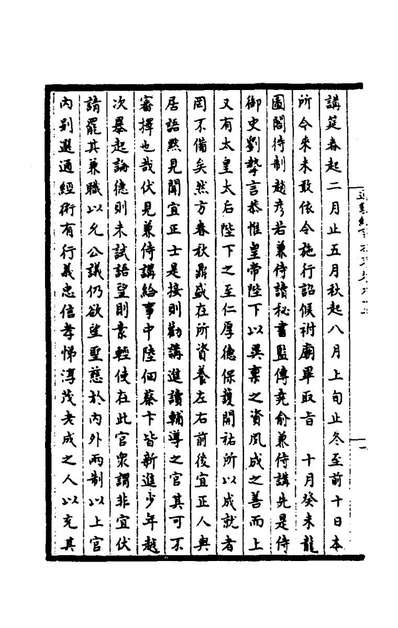 講筵春起二月止五月秋起八月上旬止冬至前十日本
所令來未敢依令施行詔候祔廟畢取旨　十月癸未龍
圖閣待制趙彥若兼侍讀秘書監傅堯俞兼侍講先是侍
御史劉摯言恭惟皇帝陛下以異稟之資夙成之善而上
又有太皇太后陛下之至仁厚德保護開祐所以成就者
罔不備矣然方春秋鼎盛在所資養左右前後宜正人與
居語默見聞宜正士是接則勸講進讀輔導之官其可不
審擇也哉伏見兼侍講給事中陸佃蔡卞皆新進少年越
次暴起論德則未試語望則素輕使在此官衆謂非宜伏
請罷其兼職以允公議仍欲望聖慈於內外兩制以上官
內別選通經術有行義忠信孝悌淳茂老成之人以充其